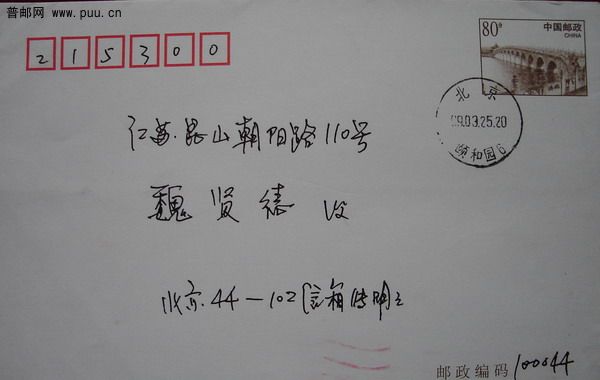 普邮网 www.puu.cn
215300
80分
中国邮政
CHINA
北京
09.03.25.20
颐和园6
江苏.昆山朝阳路110号
魏贤德 收
北京.44-102信箱
邮政编码 100044